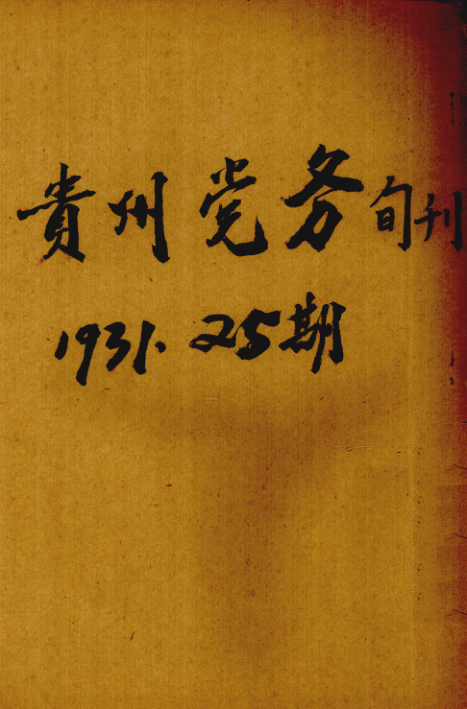 貴州党务旬刊
1931. 25期